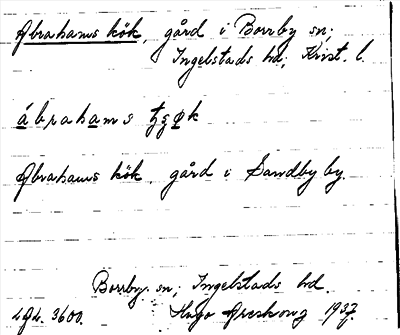 Abrahams kök, gård i Borrby sn;
Ingelstads hd; Krist. l.
ábrahams
Abrahams kök, gård i Sandby by.
Borrby sn; Ingelstads hd.
3600. Hugo Areskoug 1937.